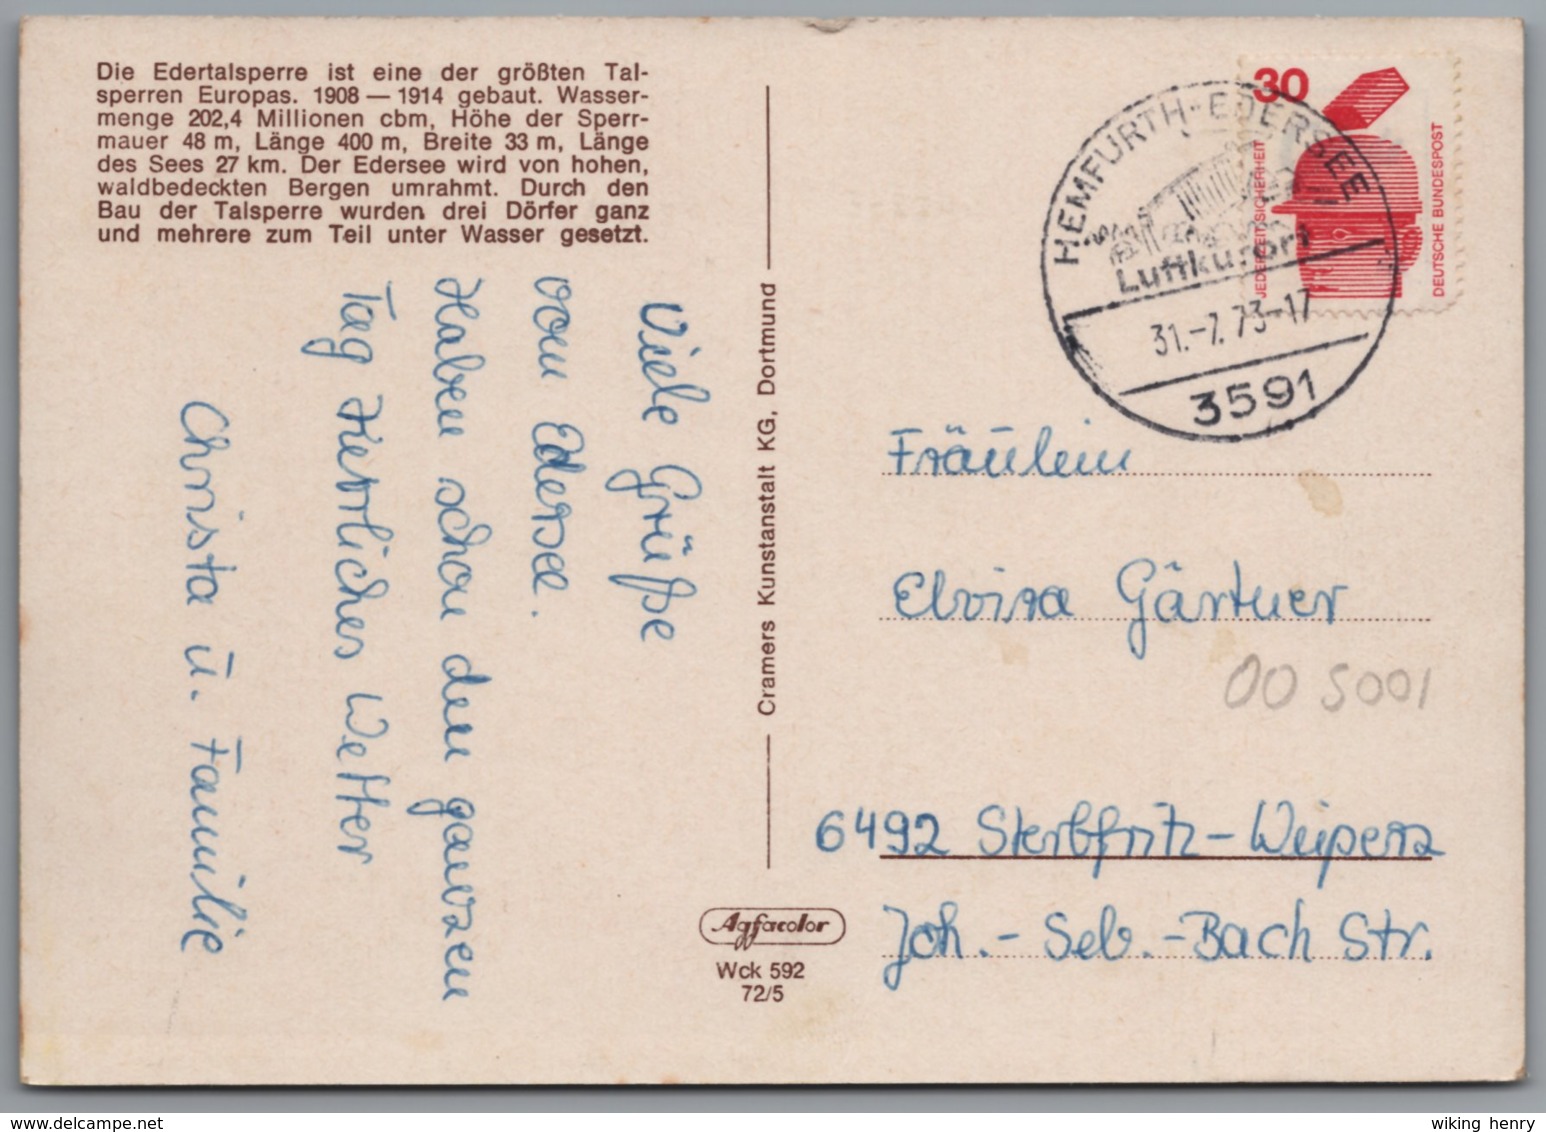 Die Edertalsperre ist eine der größten Tal-
sperren Europas. 1908 — 1914 gebaut. Wasser-
menge 202,4 Millionen cbm, Höhe der Sperr-
mauer 48 m, Länge 400 m, Breite 33 m, Länge
des Sees 27 km. Der Edersee wird von hohen,
waldbedeckten Bergen umrahmt. Durch den
Bau der Talsperre wurden drei Dörfer ganz
und mehrere zum Teil unter Wasser gesetzt.
Viele Grüße
vom Edersee.
Haben schon den ganzen
Tag herrliches Wetter
Christa u. Familie
Cramers Kunstanstalt KG, Dortmund
Agfacolor
Wck 592
72/5
30
JEDERZEIT SICHERHEIT
DEUTSCHE BUNDESPOST
HEMFURTH-EDERSEE
Luftkurort
31.-7.73-17
3591
Fräulein
Elvira Gärtner
00 5001
6492 Sterbfritz-Weiperz
Joh.-Seb.-Bach Str.
www.delcampe.net
wiking henry